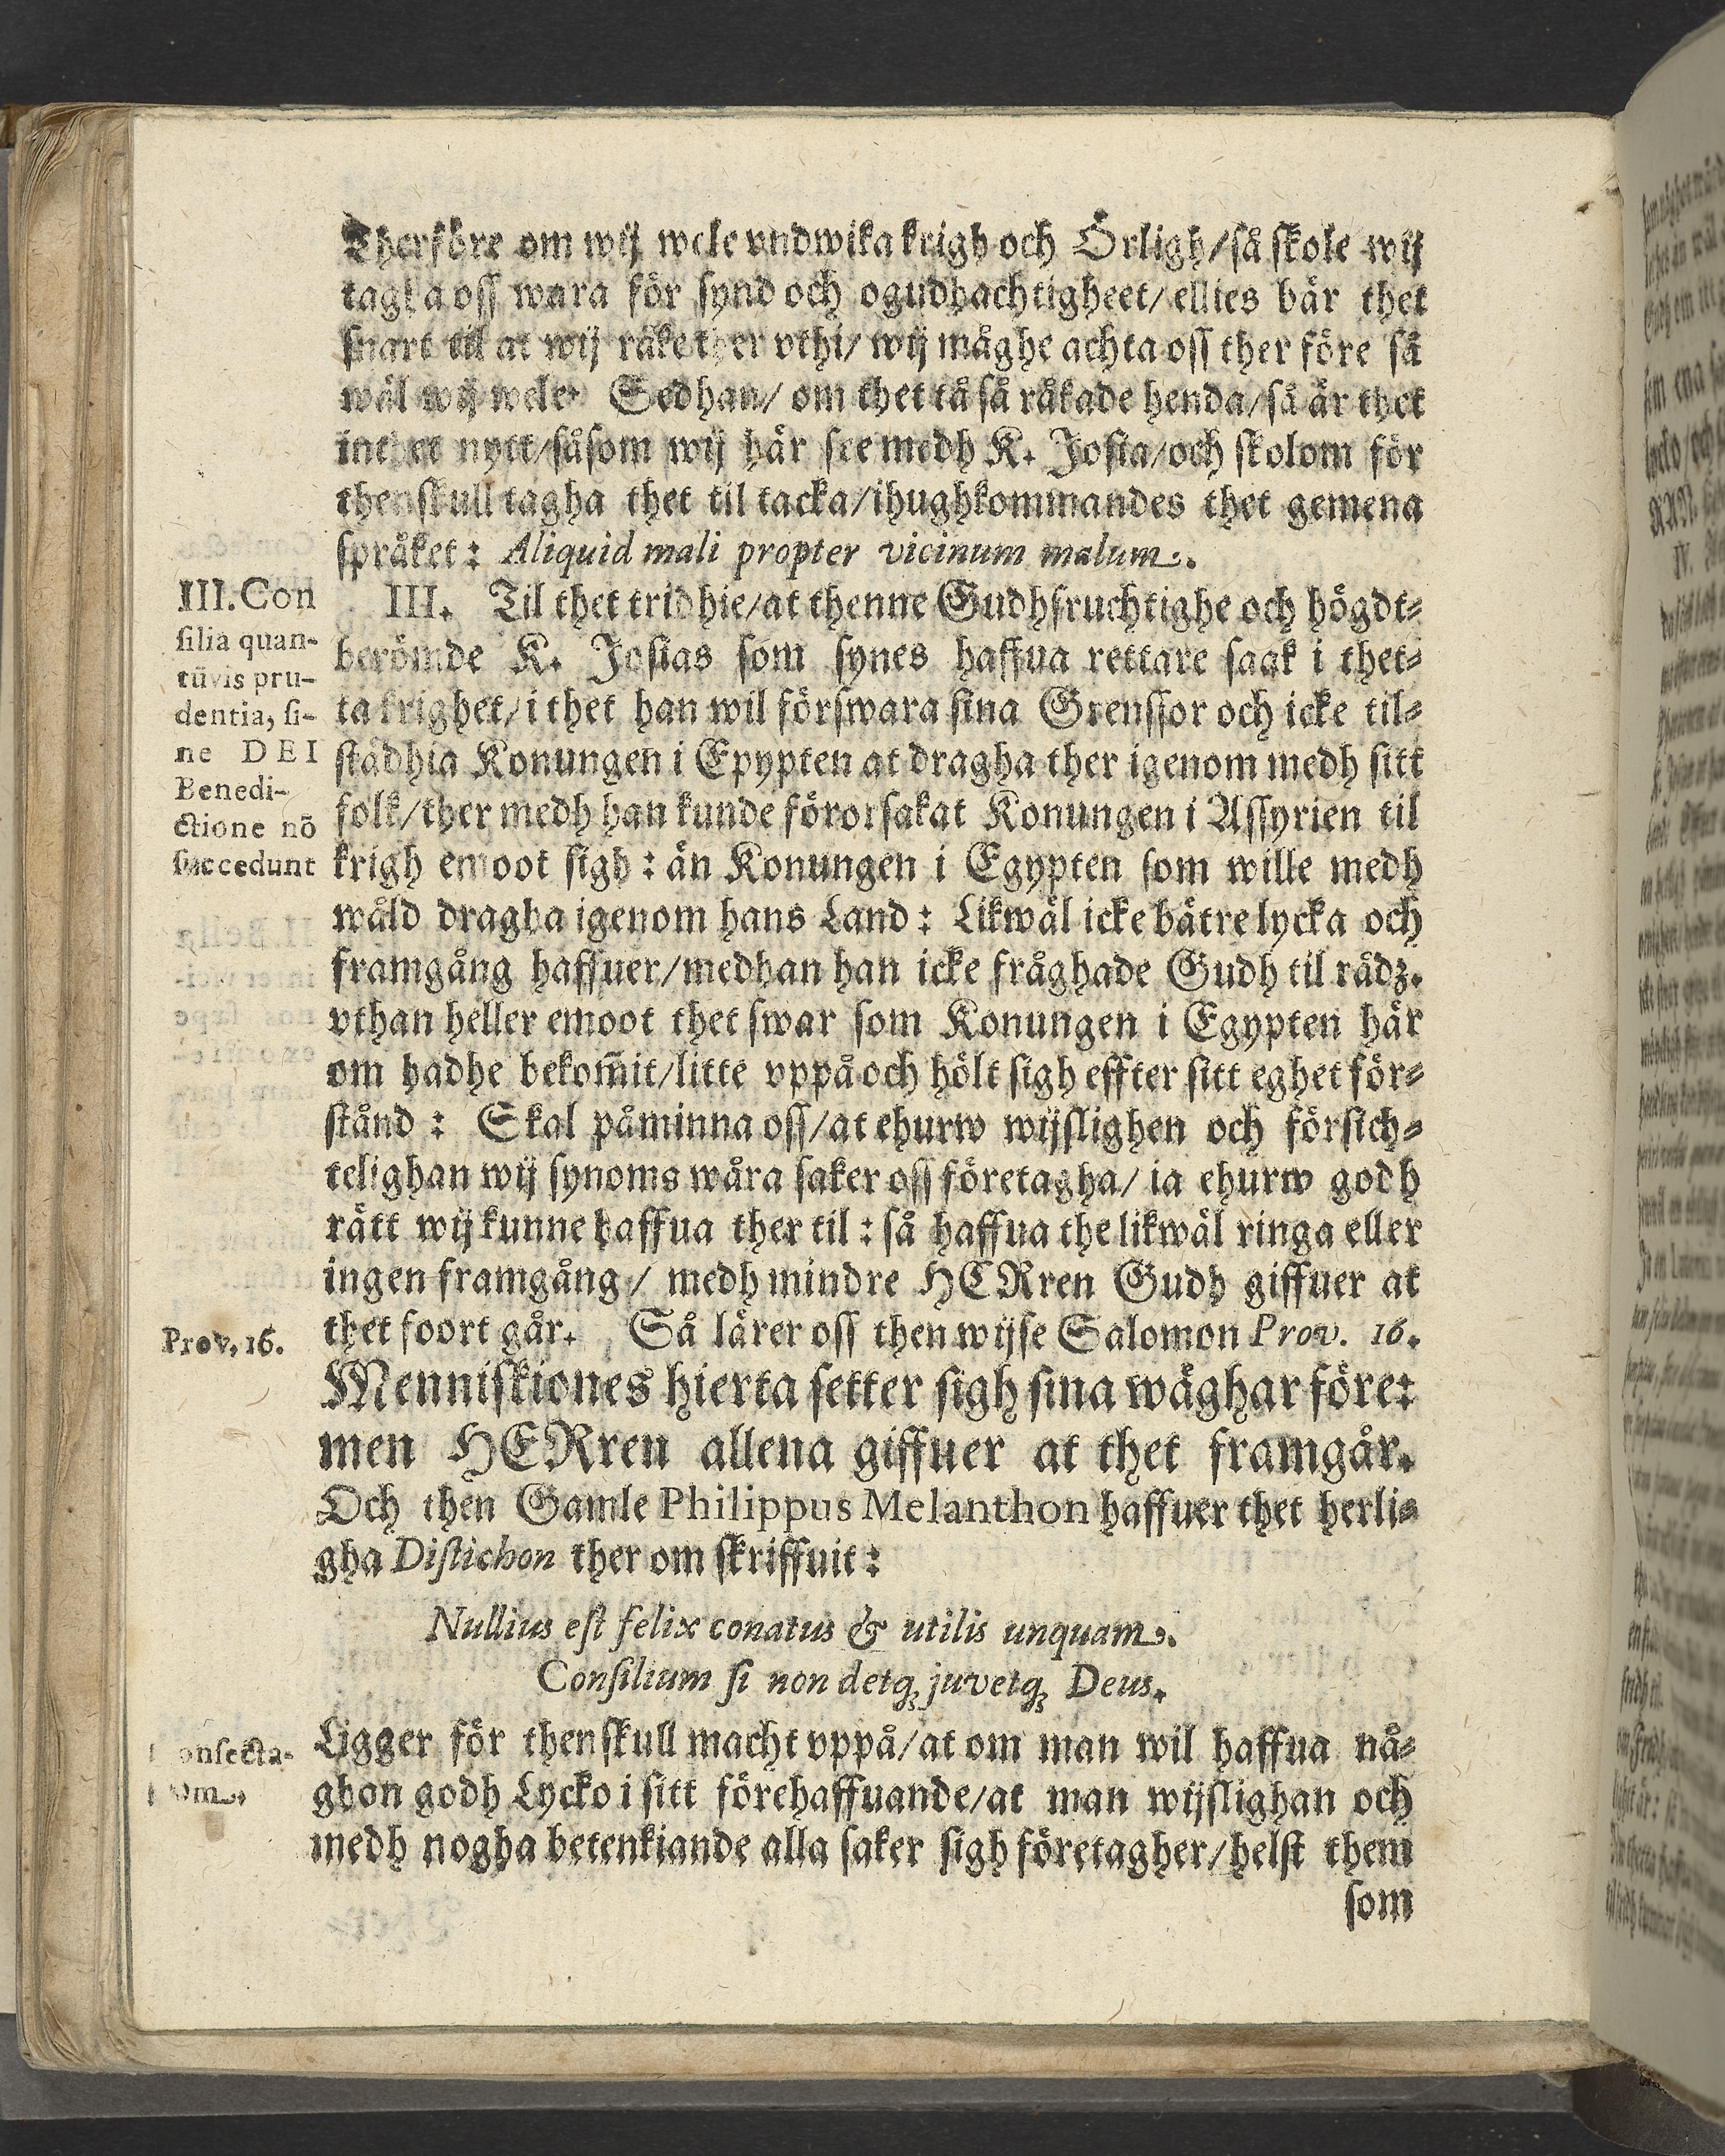 Therföre om wij wele vndwika krigh och Örligh/så skole wij
tagha oss wara för synd och ogudhachtigheet/ellies bär thet
snart til at wij råke ther vthi/wij måghe achta oss ther före så
wäl wij wele. Sedhan/om thet tå så råkade henda/så är thet
inthet nytt/såsom wij här see medh K. Josia/och skolom för
thenskull tagha thet til tacka/ihughkommandes thet gemena
språket: Aliquid mali propter vicinum malum.
III. Con
silia quan-
tũvis pru-
dentia, si-
ne DEI
Benedi-
ctione nō
succedunt
III. Til thet tridhie/at thenne Gudhfruchtighe och högdt-
berömde K. Josias som synes haffua rettare saak i thet-
ta krighet/i thet han wil förswara sina Grenssor och icke til-
städhia Konungen i Epypten at dragha ther igenom medh sitt
folk/ther medh han kunde förorsakat Konungen i Assyrien til
krigh emoot sigh: än Konungen i Egypten som wille medh
wåld dragha igenom hans Land: Likwäl icke bätre lycka och
framgång haffuer/medhan han icke fråghade Gudh til rådz.
vthan heller emoot thet swar som Konungen i Egypten här
om hadhe bekom̃it/litte vppå och hölt sigh effter sitt eghet för-
stånd: Skal påminna oss/at ehurw wijslighen och försich-
telighan wij synoms wåra saker oss företagha/ia ehurw godh
rätt wij kunne haffua ther til: så haffua the likwäl ringa eller
ingen framgång/medh mindre HERren Gudh giffuer at
thet foort går. Så lärer oss then wijse Salomon Prov. 16.
Prov, 16.
Menniskiones hierta setter sigh sina wäghar före:
men HERren allena giffuer at thet framgår.
Och then Gamle Philippus Melanthon haffuer thet herli-
gha Distichon ther om skriffuit:
Nullius est felix conatus & utilis unquam.
Consilium si non detq́; juvetq́; Deus.
Ligger för thenskull macht vppå/at om man wil haffua nå-
onsecta-
ghon godh Lycko i sitt förehaffuande/at man wijslighan och
medh nogha betenkiande alla saker sigh företagher/helst them
som